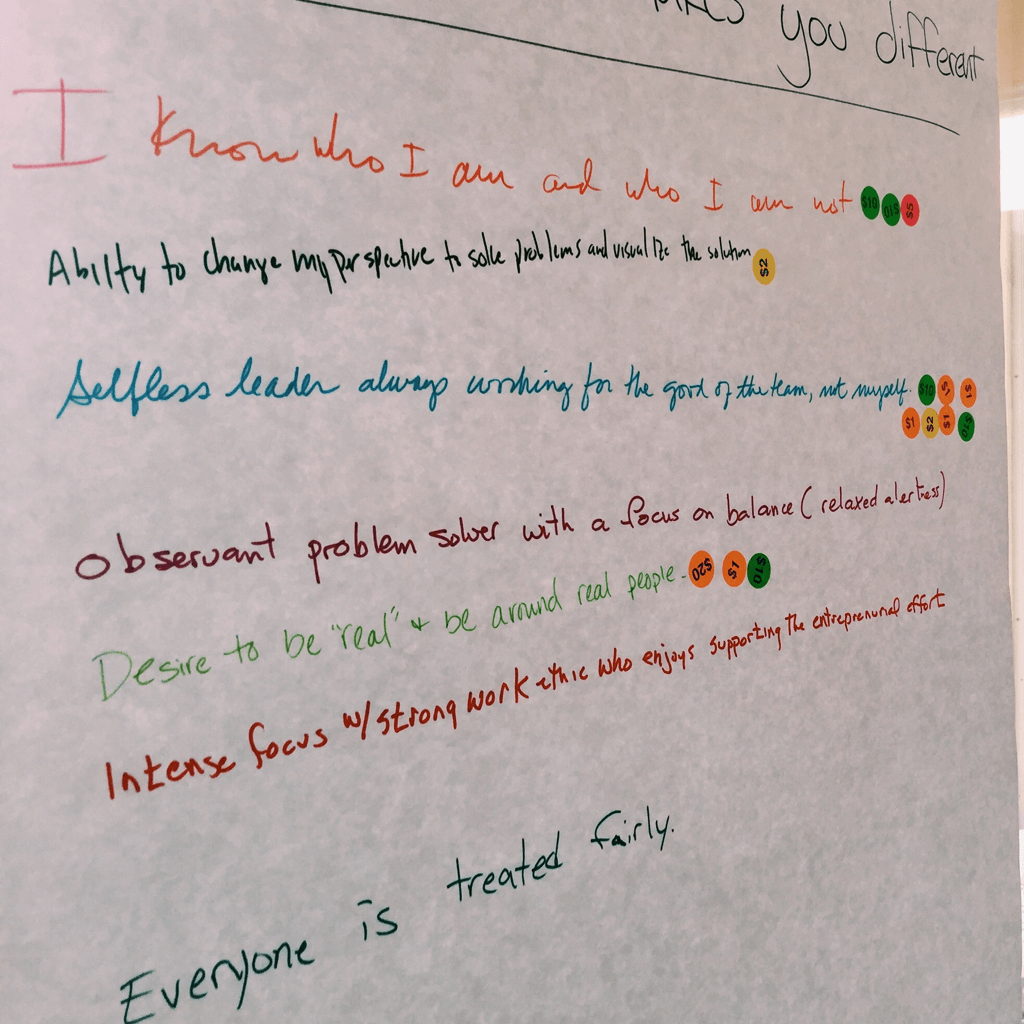 you different
I know who I am and who I am not $10 $10 $5
Abilty to change my perspective to solve problems and visualize the solution $2
Selfless leader always working for the good of the team, not myself. $10 $1
$1 $2 $1 $10
Observant problem solver with a focus on balance (relaxed alertness)
Desire to be "real" + be around real people - $20 $1 $10
Intense focus w/ strong work ethic who enjoys supporting the entreprenurial effort
Everyone is treated fairly.